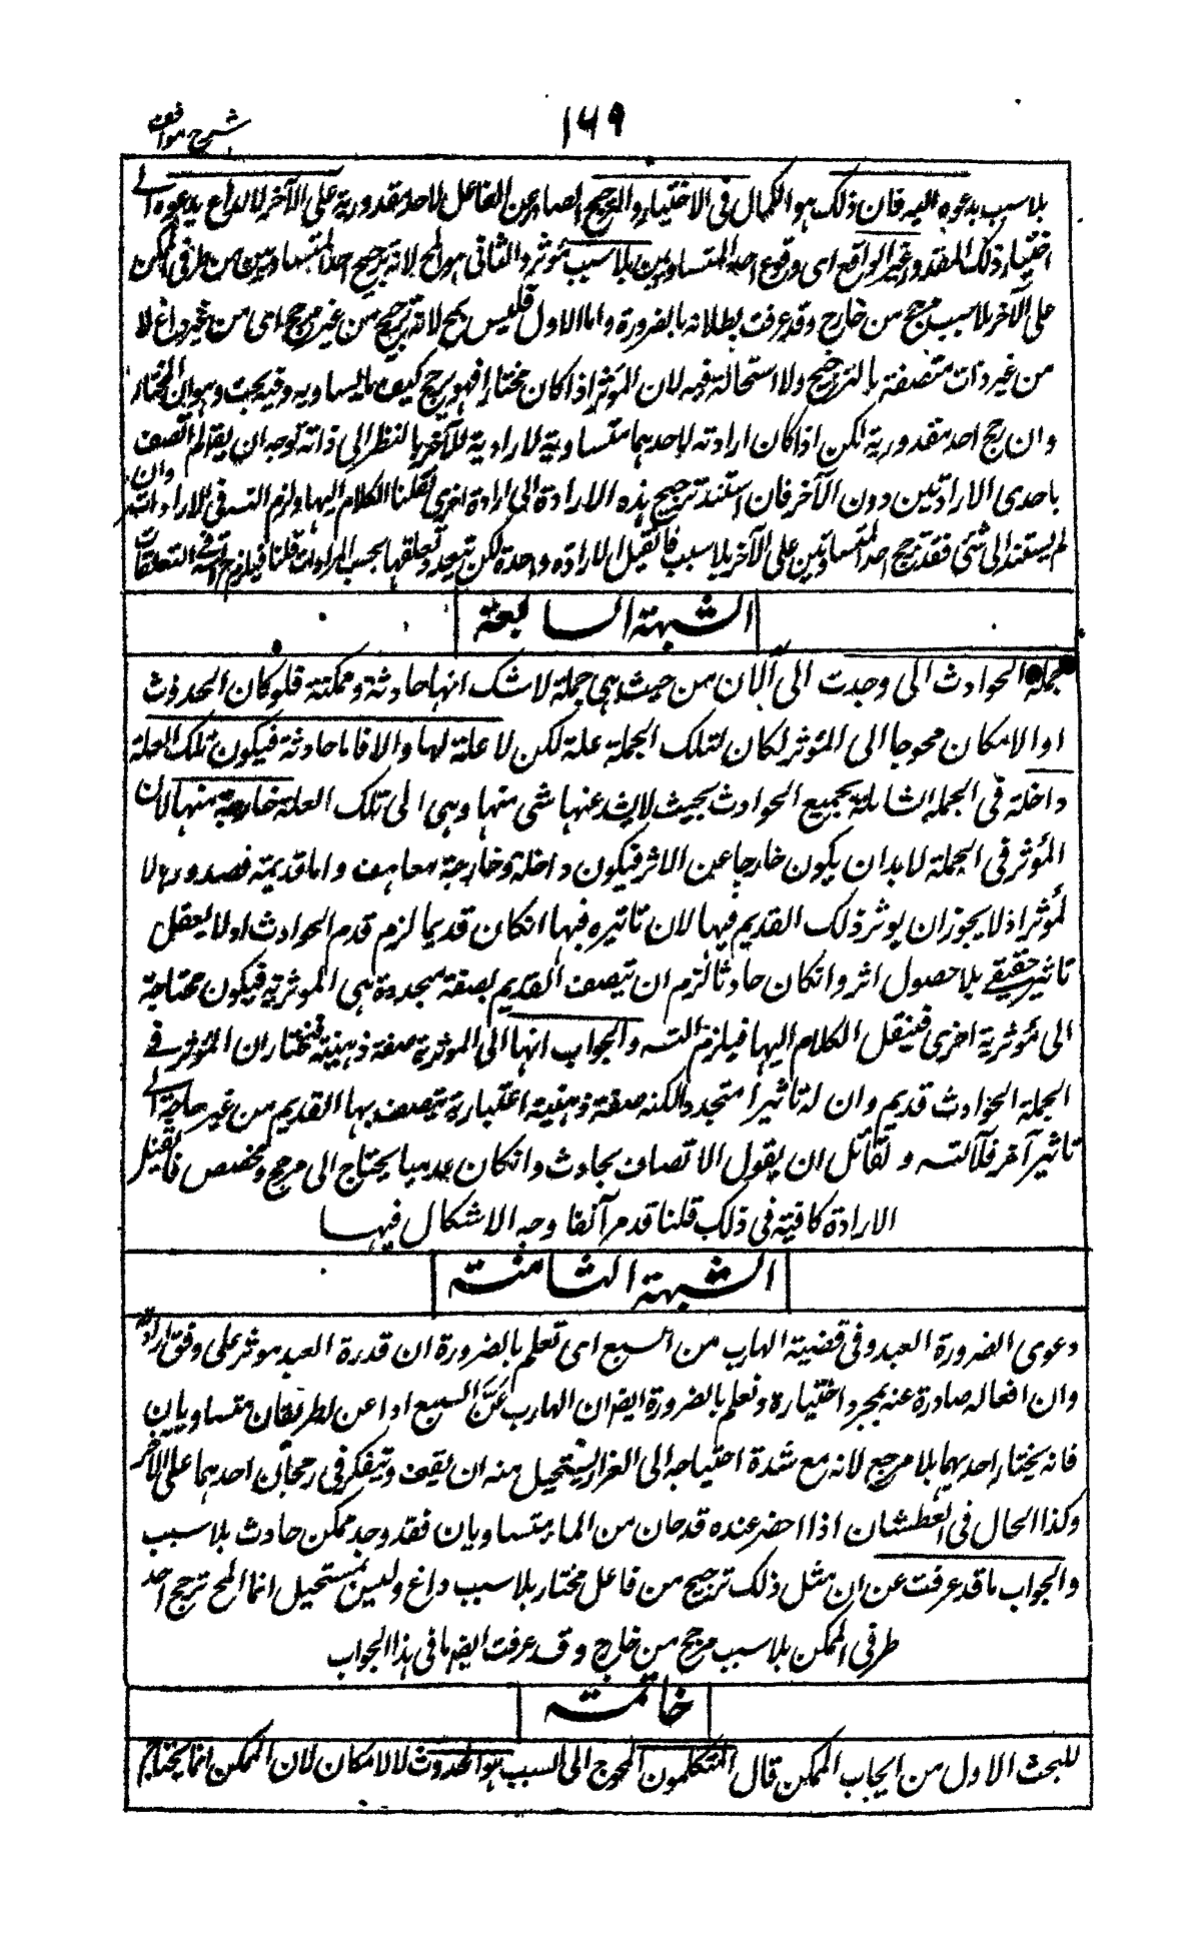 شرح مواقف
۱۶۹
بلا سبب يدعوه اليه فان ذلك هو الكمال فى الاختيار والترجيح الصادر عن الفاعل لاحد مقدوريه على الآخر لا لداع يدعوه الى
اختيار ذلك المقدور غير الواقع اى وقوع احد المتساويين بلا سبب مؤثر والثانى هو المح لانه ترجيح احد المتساويين من طرفى الممكن
على الآخر بلا سبب مرجح من خارج وقد عرفت بطلانه بالضرورة واما الاول فليس بمح لانه ترجيح من غير مرجح اى من غير داع لا
من غير ذات متصفة بالترجيح ولا استحالة فيه لان المؤثر اذا كان مختارا فهو يرجح كيف مايساويه وفيه بحث وهو ان المختار
وان رجح احد مقدوريه لكن اذا كان ارادته لاحدهما متساوية لارادية للآخر بالنظر الى ذاته توجه ان يقال لم اتصف
باحدى الارادتين دون الآخر فان استندت ترجيح هذه الارادة الى ارادة اخرى نقلنا الكلام اليها ولزم التس فى الارادات وان
لم يستند الى شئ فقد ترجح احد المتساويين على الآخر بلا سبب فان قيل الارادة واحدة لكن تتعدد تعلقها بحسب المرادات قلنا فيلزم التس فى التعلقات
الشبهة السابعة
جملة الحوادث التى وجدت الى الآن من حيث هى جملة لاشك انها حادثة وممكنة فلو كان الحدوث
او الامكان محوجا الى المؤثر لكان لتلك الجملة علة لكن لا علة لها والا فاما حادثة فيكون تلك العلة
داخلة فى الجملة الشاملة بجميع الحوادث بحيث لايشذ عنها شئ منها وهى اى تلك العلة خارجة منها لان
المؤثر فى الجملة لابد ان يكون خارجا عن الاثر فيكون داخلة وخارجة معا هف واما قديمة فصدورها لا
لمؤثر اذ لا يجوز ان يوثر ذلك القديم فيها لان تاثيره فيها انكان قديما لزم قدم الحوادث اولا يعقل
تاثير حقيقے بلا حصول اثر وانكان حادثا لزم ان يتصف القديم بصفة متجددة هى المؤثرية فيكون محتاجة
الى مؤثرية اخرى فينقل الكلام اليها فيلزم التسه والجواب انها اى المؤثرية صفة ذهنية فنختار ان المؤثر فے
الجملة الحوادث قديم وان له تاثيرا متجددا لكنه صفة ذهنية اعتبارية يتصف بها القديم من غير حاجة الى
تاثير آخر فلا التسه ولقائل ان يقول الاتصاف بحادث وانكان عدميا يحتاج الى مرجح ومخصص فان قيل
الارادة كافية فى ذلك قلنا قد مر آنفا وجه الاشكال فيها
الشبهة الثامنة
دعوى الضرورة العبد وفى قضية الهارب من السبع اى نعلم بالضرورة ان قدرة العبد موثر على وفق ارادته
وان افعاله صادرة عنه بمجرد اختياره ونعلم بالضرورة ايضا ان الهارب عن السبع اذا عن له طريقان متساويان
فانه يختار احدهما بلا مرجح لانه مع شدة احتياجه الى الفرار يستحيل منه ان يقف ويتفكر فى رجحان احدهما على الآخر
وكذا الحال فى العطشان اذا احضر عنده قدحان من الماء متساويان فقد وجد ممكن حادث بلا سبب
والجواب ما قد عرفت عن ان مثل ذلك ترجيح من فاعل مختار بلا سبب داع وليس بمستحيل انما المح ترجح احد
طرفى الممكن بلا سبب مرجح من خارج وقد عرفت ايضا ما فى هذا الجواب
خاتمة
للبحث الاول من ايجاب الممكن قال المتكلمون المحوج الى السبب هو الحدوث لا الامكان لان الممكن انما يحتاج